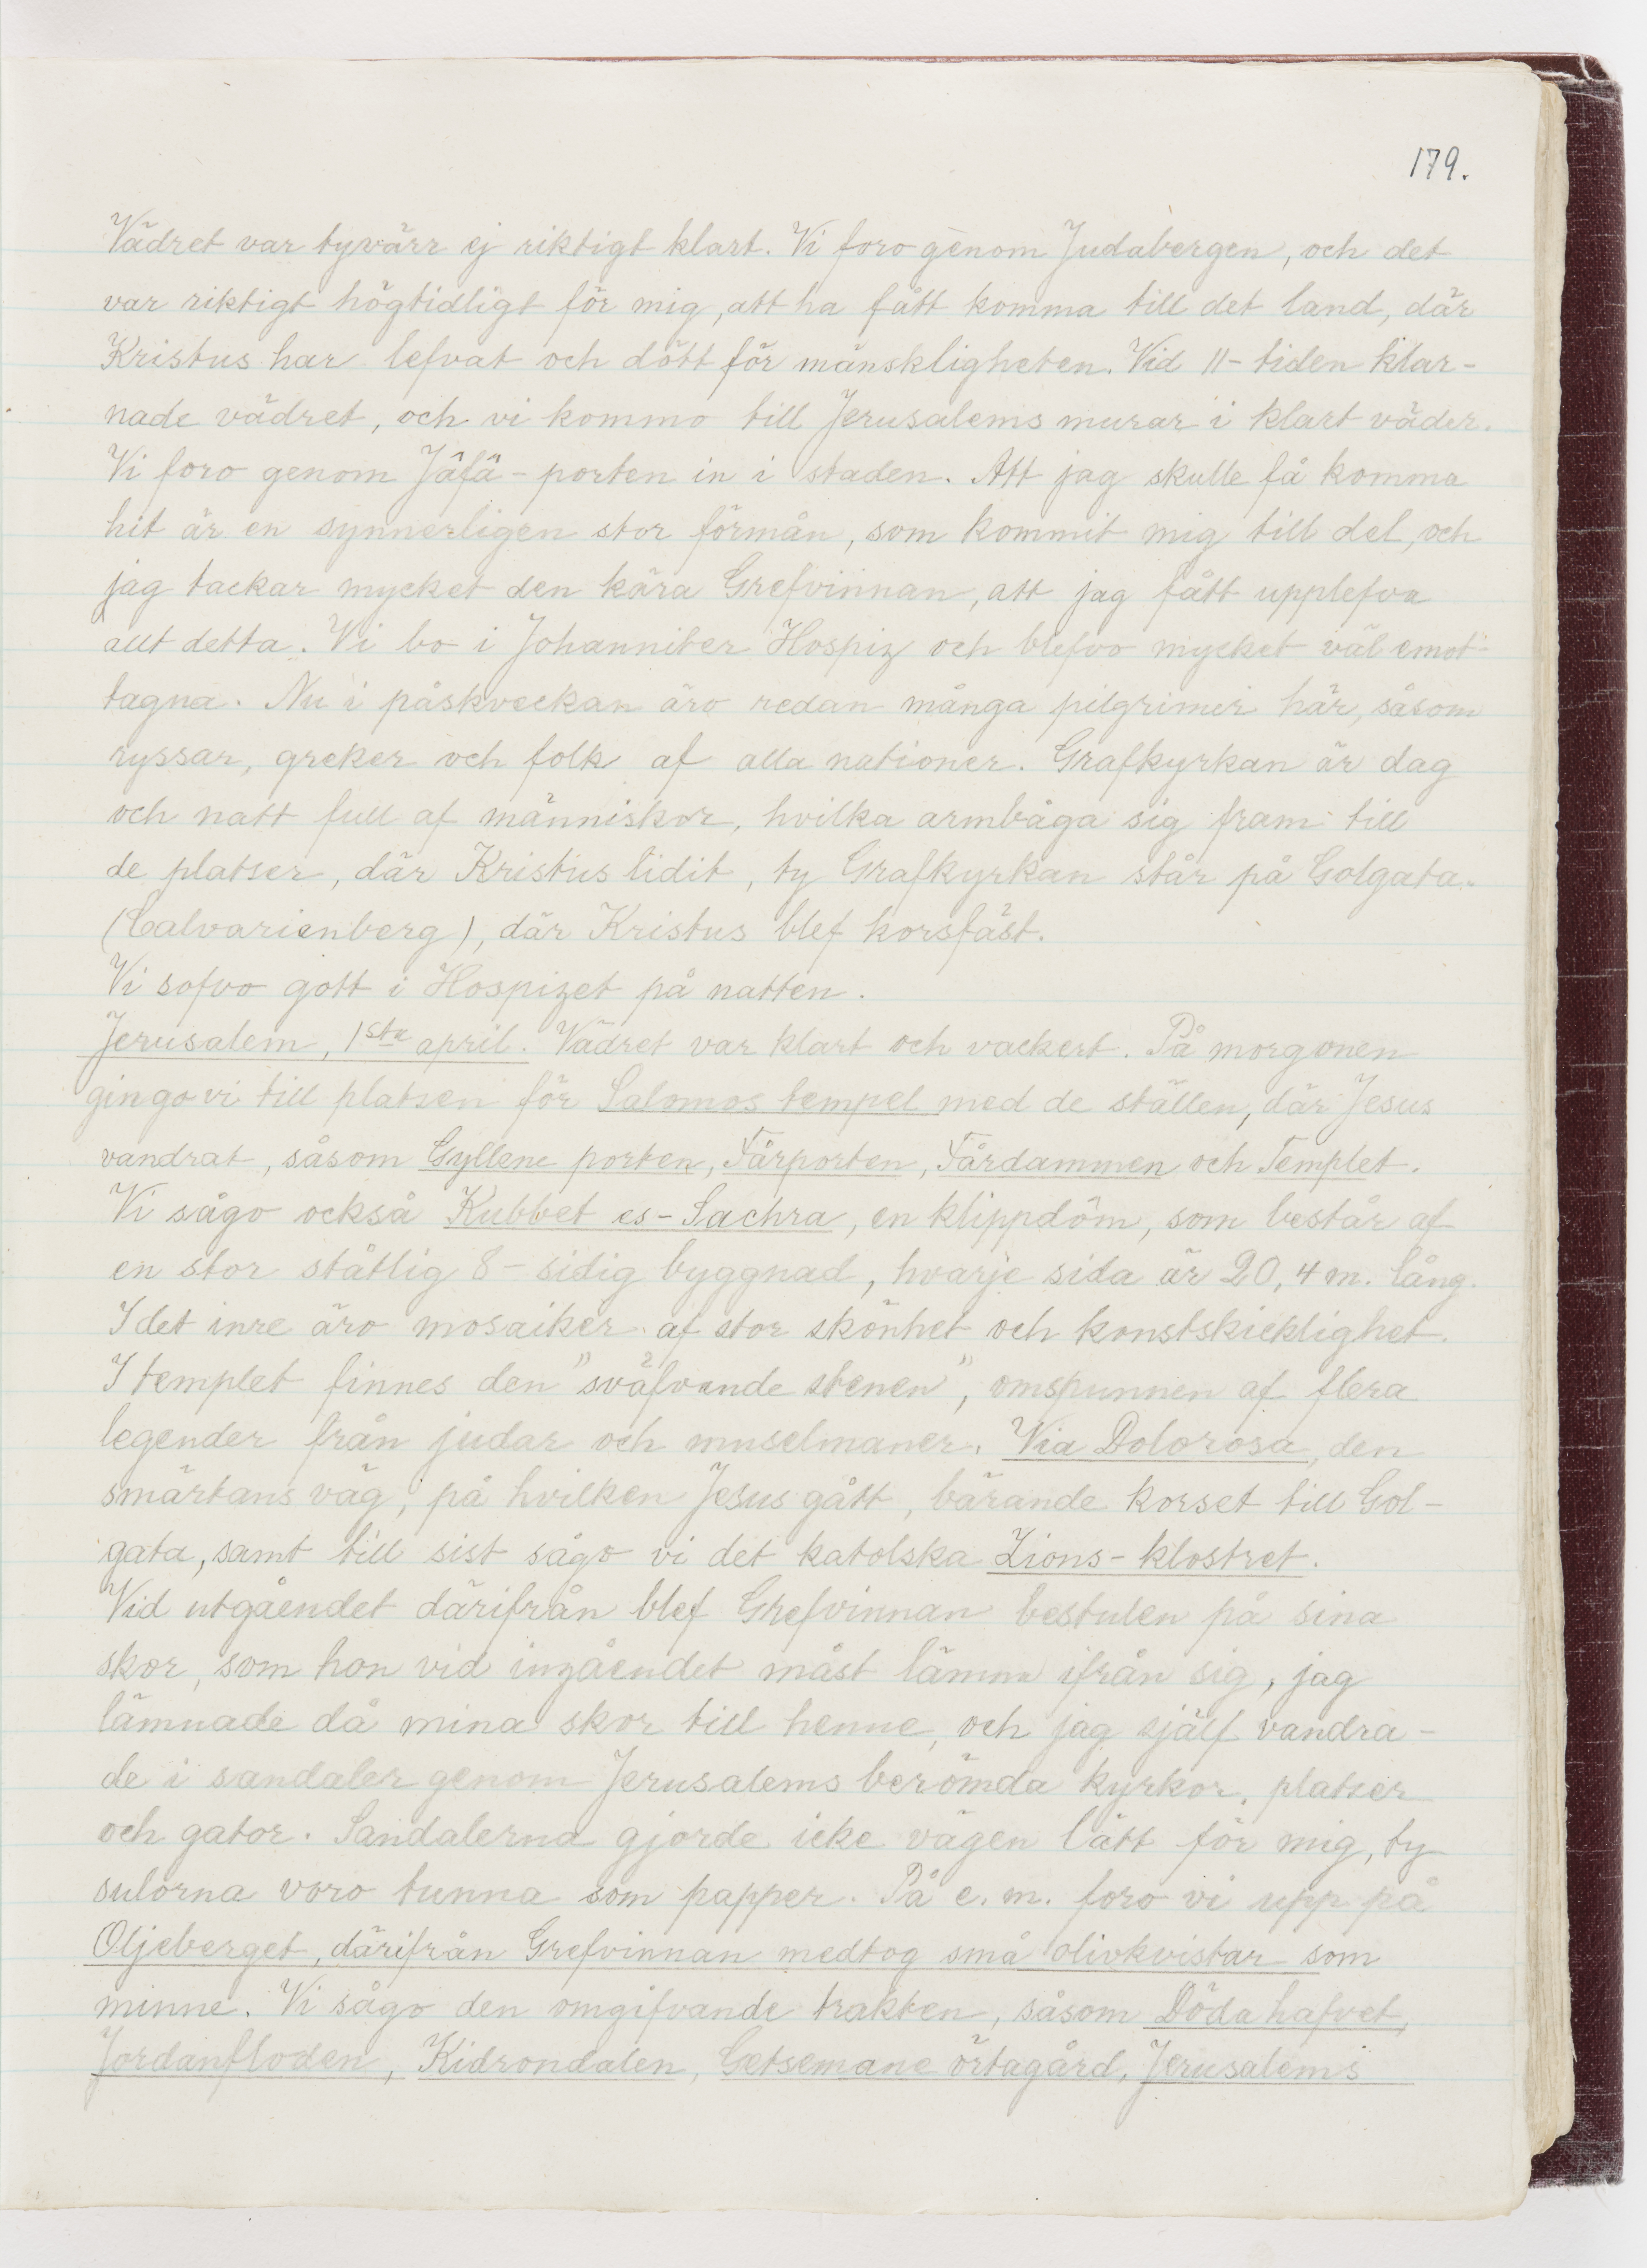 179.
Vädret var tyvärr ej riktigt klart. Vi foro genom Judabergen, och det
var riktigt högtidligt för mig, att ha fått komma till det land, där
Kristus har lefvat och dött för mänskligheten. Vid 11-tiden klar-
nade vädret, och vi kommo till Jerusalems murar i klart väder.
Vi foro genom Jâfâ-porten in i staden. Att jag skulle få komma
hit är en synnerligen stor förmån, som kommit mig till del, och
jag tackar mycket den kära Grefvinnan, att jag fått upplefva
allt detta. Vi bo i Johanniter Hospiz och blefvo mycket väl emot-
tagna. Nu i påskveckan äro redan många pilgrimer här, såsom
ryssar, greker och folk af alla nationer. Grafkyrkan är dag
och natt full af människor, hvilka armbåga sig fram till
de platser, där Kristus lidit, ty Grafkyrkan står på Golgata.
(Calvarienberg), där Kristus blef korsfäst.
Vi sofvo gott i Hospizet på natten.
Jerusalem, 1sta april. Vädret var klart och vackert. På morgonen
gingo vi till platsen för Salomos tempel med de ställen, där Jesus
vandrat, såsom Gyllene porten, Fårporten, Fårdammen och Templet.
Vi sågo också Kubbet es-Sachra, en klippdôm, som består af
en stor ståtlig 8-sidig byggnad, hvarje sida är 20,4 m. lång.
I det inre äro mosaiker af stor skönhet och konstskicklighet.
I templet finnes den "sväfvande stenen", omspunnen af flera
legender från judar och muselmaner. Via Dolorosa, den
smärtans väg, på hvilken Jesus gått, bärande korset till Gol-
gata, samt till sist sågo vi det katolska Zions-klostret.
Vid utgåendet därifrån blef Grefvinnan bestulen på sina
skor, som hon vid ingåendet måst lämna ifrån sig, jag
lämnade då mina skor till henne, och jag själf vandra-
de i sandaler genom Jerusalems berömda kyrkor, platser
och gator. Sandalerna gjorde icke vägen lätt för mig, ty
sulorna voro tunna som papper. På e. m. foro vi upp på
Oljeberget, därifrån Grefvinnan medtog små olivkvistar som
minne. Vi sågo den omgifvande trakten, såsom Döda hafvet,
Jordanfloden, Kidrondalen, Getsemane örtagård, Jerusalems